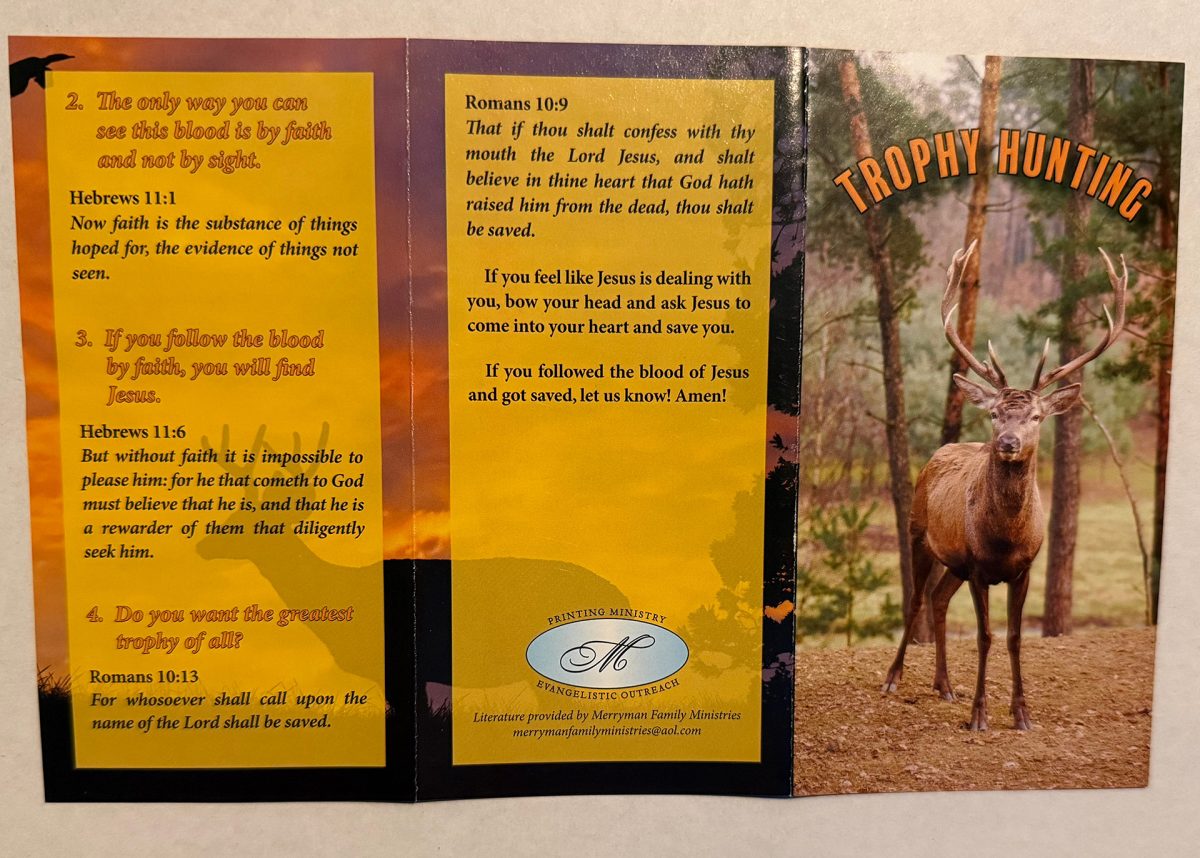 2. The only way you can
see this blood is by faith
and not by sight.
Hebrews 11:1
Now faith is the substance of things
hoped for, the evidence of things not
seen.
3. If you follow the blood
by faith, you will find
Jesus.
Hebrews 11:6
But without faith it is impossible to
please him: for he that cometh to God
must believe that he is, and that he is
a rewarder of them that diligently
seek him.
4. Do you want the greatest
trophy of all?
Romans 10:13
For whosoever shall call upon the
name of the Lord shall be saved.
Romans 10:9
That if thou shalt confess with thy
mouth the Lord Jesus, and shalt
believe in thine heart that God hath
raised him from the dead, thou shalt
be saved.
If you feel like Jesus is dealing with
you, bow your head and ask Jesus to
come into your heart and save you.
If you followed the blood of Jesus
and got saved, let us know! Amen!
PRINTING MINISTRY
M
EVANGELISTIC OUTREACH
Literature provided by Merryman Family Ministries
merrymanfamilyministries@aol.com
TROPHY HUNTING